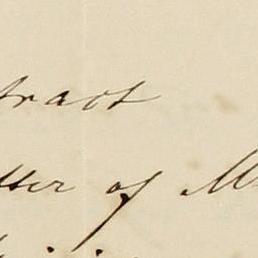 tract
tter of M